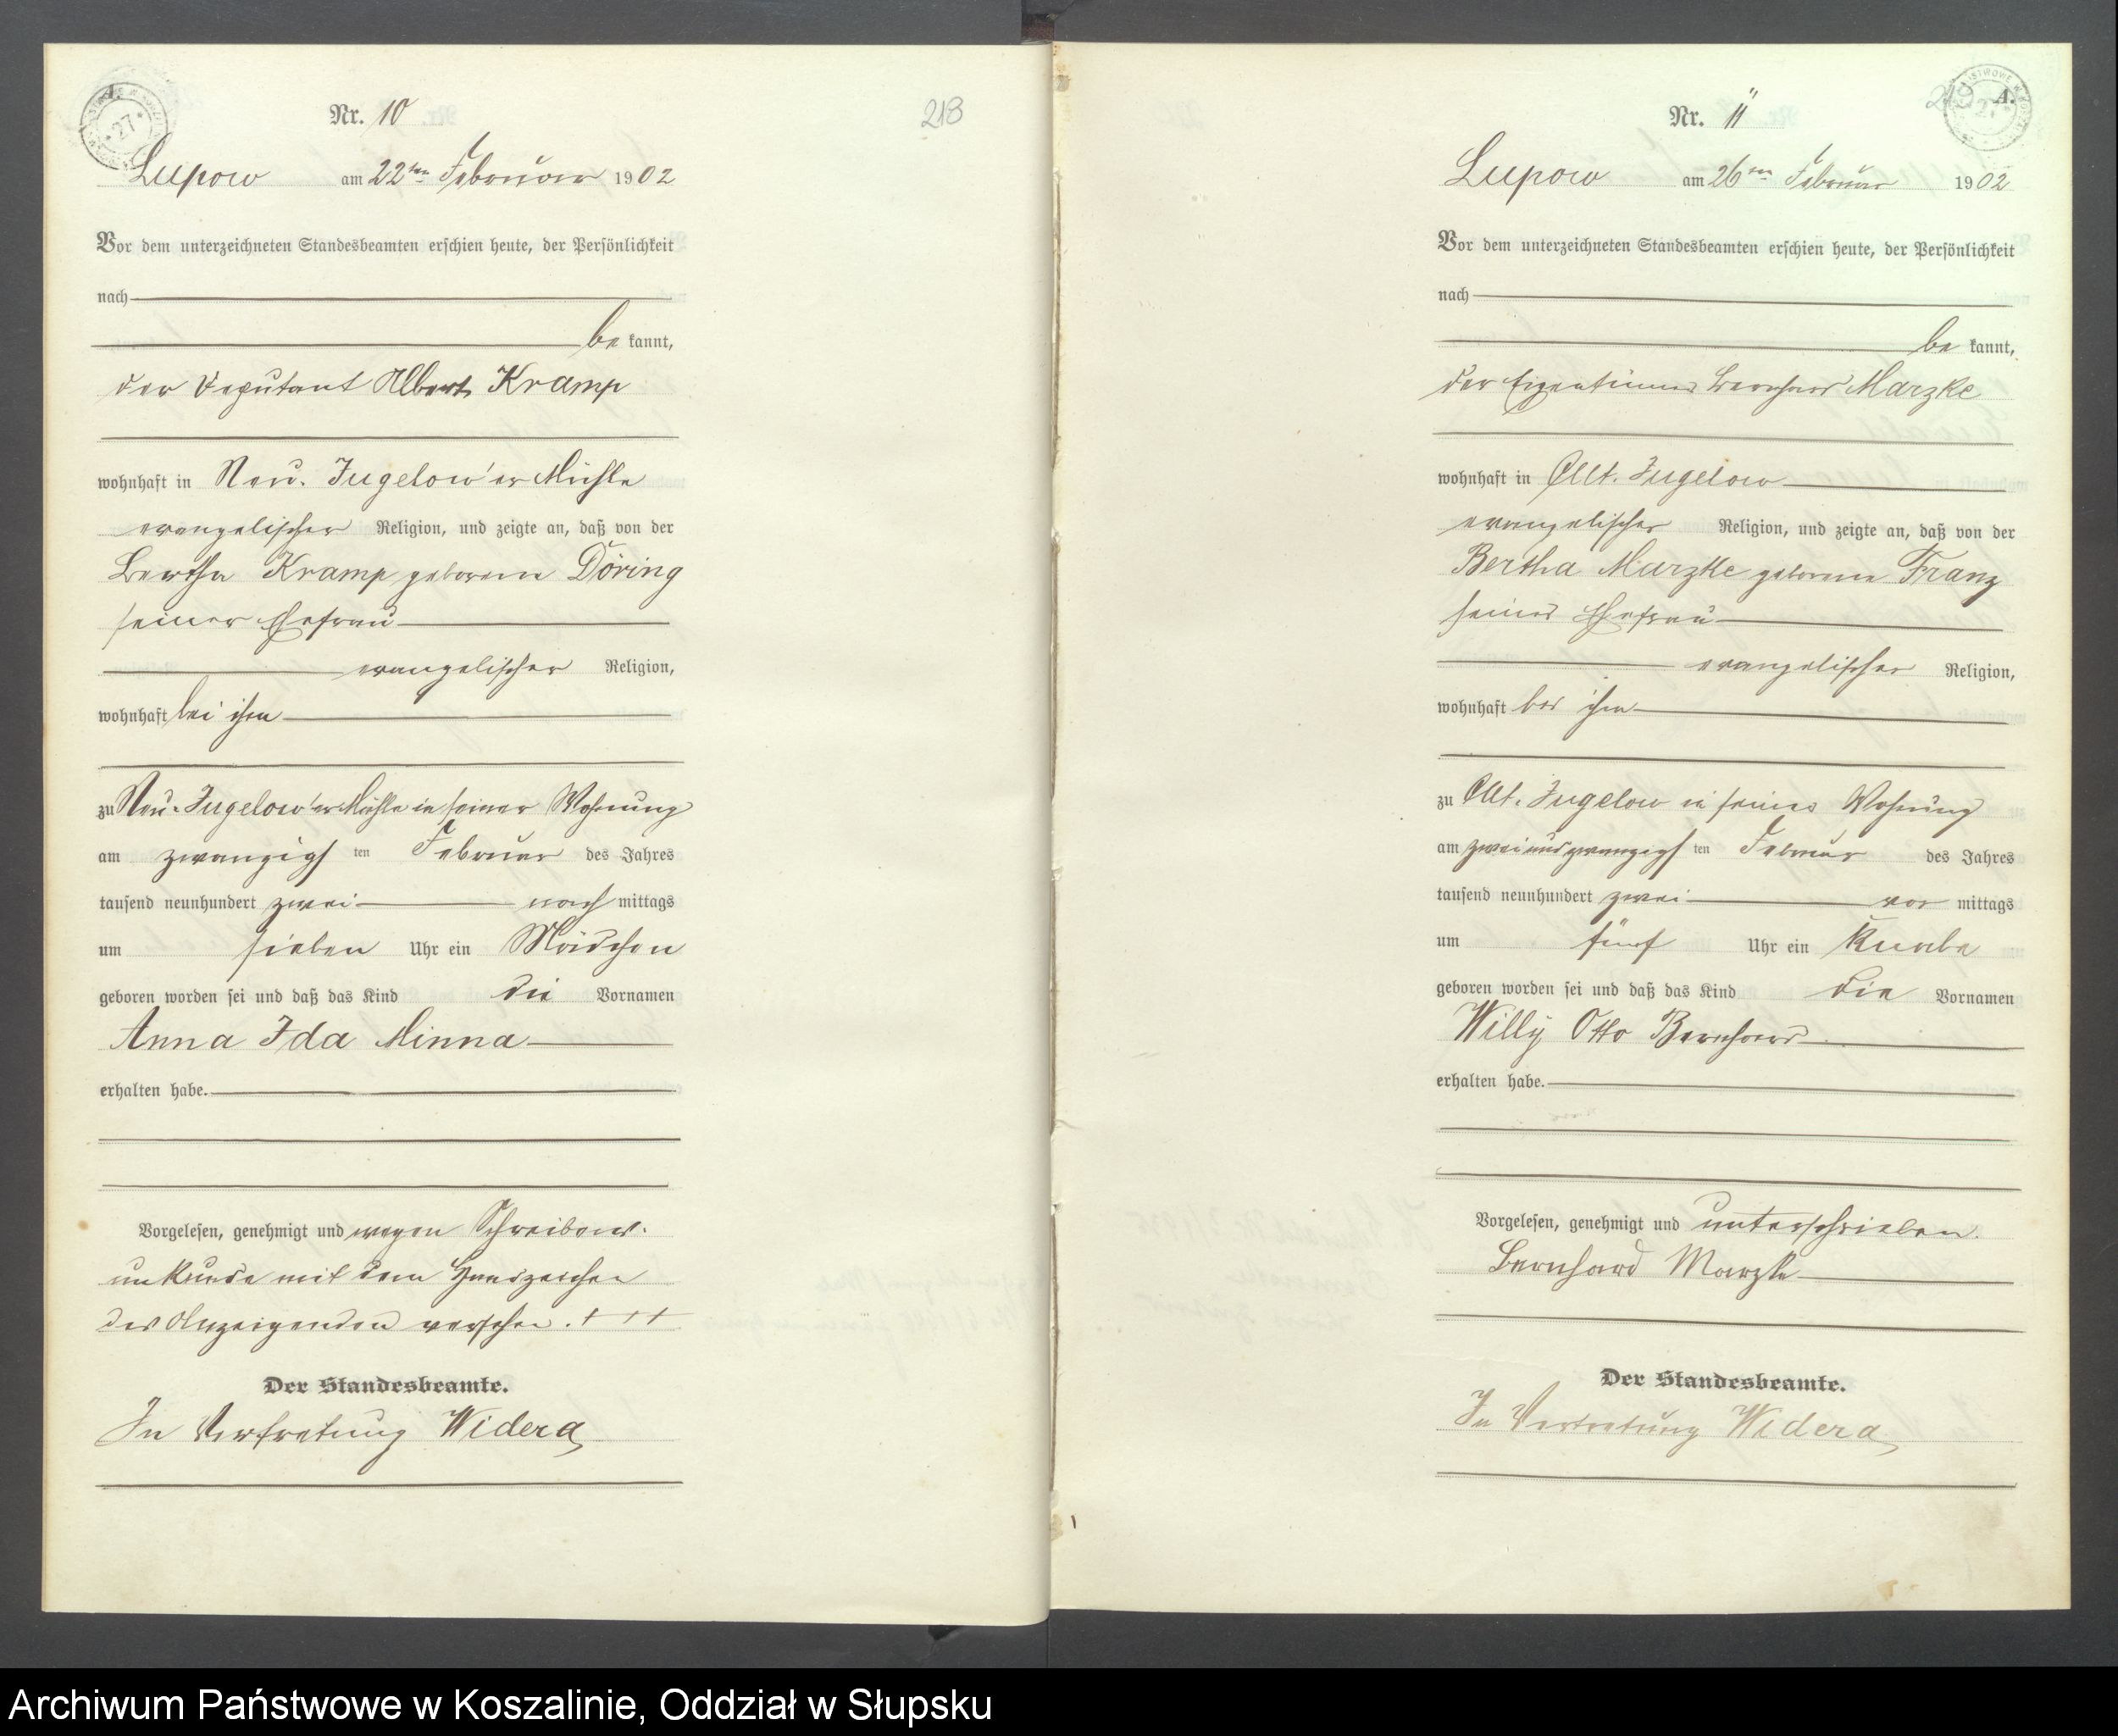 A.
Nr. 10
218
Lupow am 22ten Februar 1902
Vor dem unterzeichneten Standesbeamten erschien heute, der Persönlichkeit
nach
be kannt,
der Deputant Albert Kramp
wohnhaft in Neu. Jugelow'er Mühle
evangelischer Religion, und zeigte an, daß von der
Bertha Kramp geborene Döring
seiner Ehefrau
evangelischer Religion,
wohnhaft bei ihm
zu Neu-Jugelow'er Mühle in seiner Wohnung
am zwanzigsten Februar des Jahres
tausend neunhundert zwei nach mittags
um sieben Uhr ein Mädchen
geboren worden sei und daß das Kind die Vornamen
Anna Ida Minna
erhalten habe.
Vorgelesen, genehmigt und wegen Schreibens-
unkunde mit dem Handzeichen
des Anzeigenden versehen. + + +
Der Standesbeamte.
In Vertretung Widera
219 A.
Nr. 11
Lupow am 26ten Februar 1902
Vor dem unterzeichneten Standesbeamten erschien heute, der Persönlichkeit
nach
be kannt,
der Eigentümer Bernhard Marzke
wohnhaft in Alt. Jugelow
evangelischer Religion, und zeigte an, daß von der
Bertha Marzke geborene Franz
seiner Ehefrau
evangelischer Religion,
wohnhaft bei ihm
zu Alt. Jugelow in seiner Wohnung
am zweiundzwanzigsten Februar des Jahres
tausend neunhundert zwei vor mittags
um fünf Uhr ein Knabe
geboren worden sei und daß das Kind die Vornamen
Willy Otto Bernhard
erhalten habe.
Vorgelesen, genehmigt und unterschrieben.
Bernhard Marzke
Der Standesbeamte.
In Vertretung Widera
Archiwum Państwowe w Koszalinie, Oddział w Słupsku